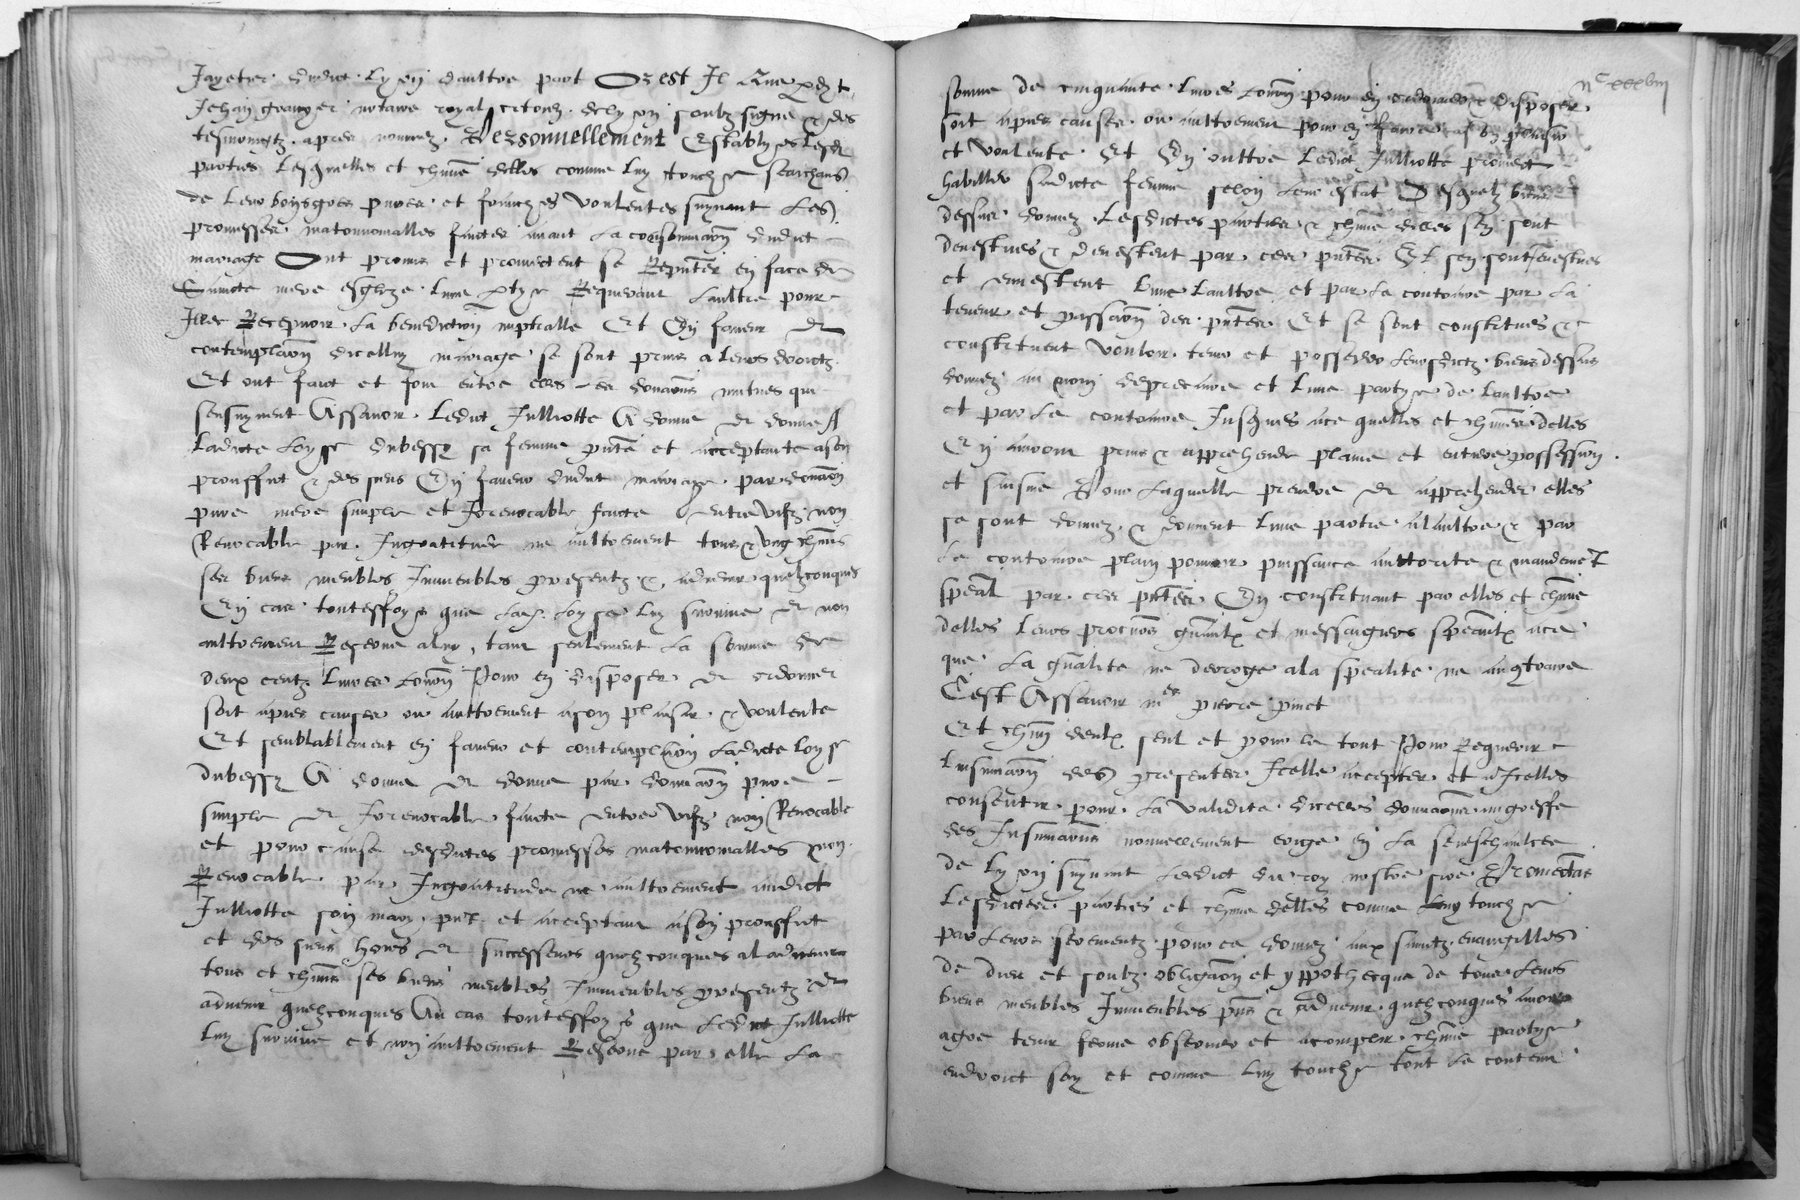 dudict Lyon daultre part Or est Il Que
Jehan notaire royal soubz signe et des
apres nommez Personnellement Establyes Lesd
parties Lesquelles et chune delles comme luy touche
de leurs bons grez pures et franches voulentes suyvant Les
promesses matrimonialles faictes avant La consommaon dudict
mariage Ont promis et promectent se Repnter en face de
Saincte mere esglize Lune ptye Requerant Laultre pour
Illec Recepvoir La benediction nuptialle Et En faveur de
contemplaon dicelluy mariage se sont prins a leurs droictz
Et ont faict et font entre elles les donaons mutues que
sensuyvent Assavoir Ledict Julliotte A donne et donne A
Ladicte Loyse dubessy sa femme pnte et acceptante a son
prouffict et des siens En faveur dudict mariage par donaon
pure mere simple et Irrevocable faicte entre vifz non
Revocable par Ingratitude ne aultrement tous et ung chuns
ses biens meubles Immeubles presentz et advenir quelzconques
En cas touteffoys que Lad Loyse luy survive et non
aultrement Reserve a luy tant seulement La somme de
deux centz livres tourn Pour en disposer et ordonner
soit a pies causes ou aultrement a son plaisir et voulente
Et semblablement en faveur et contemplaon Ladicte Loyse
dubessy A donne et donne par donaon pure
simple et Irrevocable faicte entre vifz non Revocable
et pour cause desdictes promesses matrimonialles non
Revocable par Ingratitude ne aultrement audict
Julliotte son mary pnt et acceptant a son prouffict
et des siens hoirs et successeurs quelzconques a l advenir
tous et chuns ses biens meubles Immeubles presentz et
advenir quelzconques Au cas touteffoys que Ledict Julliotte
luy survive et non aultrement Reserve par elle La
somme de cinquante livres tourn pour en ordonner et disposer
soit a pies causes ou aultrement pour en faire a son plaisir
et voulente Et En oultre Ledict Julliotte promect
habiller sadicte femme selon leur estat Desquelz biens
dessus donnez Lesdictes parties et chune delles sen sont
devestues et devestent par ces pntes Et sen sont Investues
et Lune Laultre et par Le contraire par La
teneur et passaon des pntes Et se sont constitues et
constituent vouloir tenir et posseder leursdictz biens dessus
donnez au nom de precaire et Lune partye de Laultre
et par Le contraire Jusques a ce quelles et chune delles
En auront prins et apprehende plaine et entiere possession
et saisine Pour Laquelle prendre et apprehender elles
se sont donnez et donnent Lune partie a laultre et par
Le contraire plain pouvoir puissance auttorite et mandement
speal par ces pntes En constituant par elles et chune
delles leurs procures gnaulx et messaigiers speaulx a ce
que La gnalite ne deroge a la spealite ne au contraire
C'est Assavoir mes pierre pinet
Et chun deulx seul et pour le tout Pour Requerir
Linsinuaon des presentes Icelle accepter et a Icelles
consentir pour La validite dicelles donnaons au greffe
des Insinuaons nouvellement erige en La seneschaulcee
de Lyon suyvant Ledict du roy nostre sire Promectans
Lesdictes parties et chune delles comme Luy touche
par Leurs serementz pour ce donnez aux sainctz evangilles
de dieu et soubz obligaon et yppothecque de tous Leurs
biens meubles Immeubles pns et advenir quelzconques avoir
agre tenir ferme observer et acomplir chune partye
endroict soy et comme luy touche tout le contenu